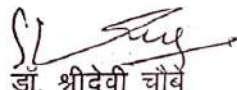 डॉ. श्रीदेवी चौबे